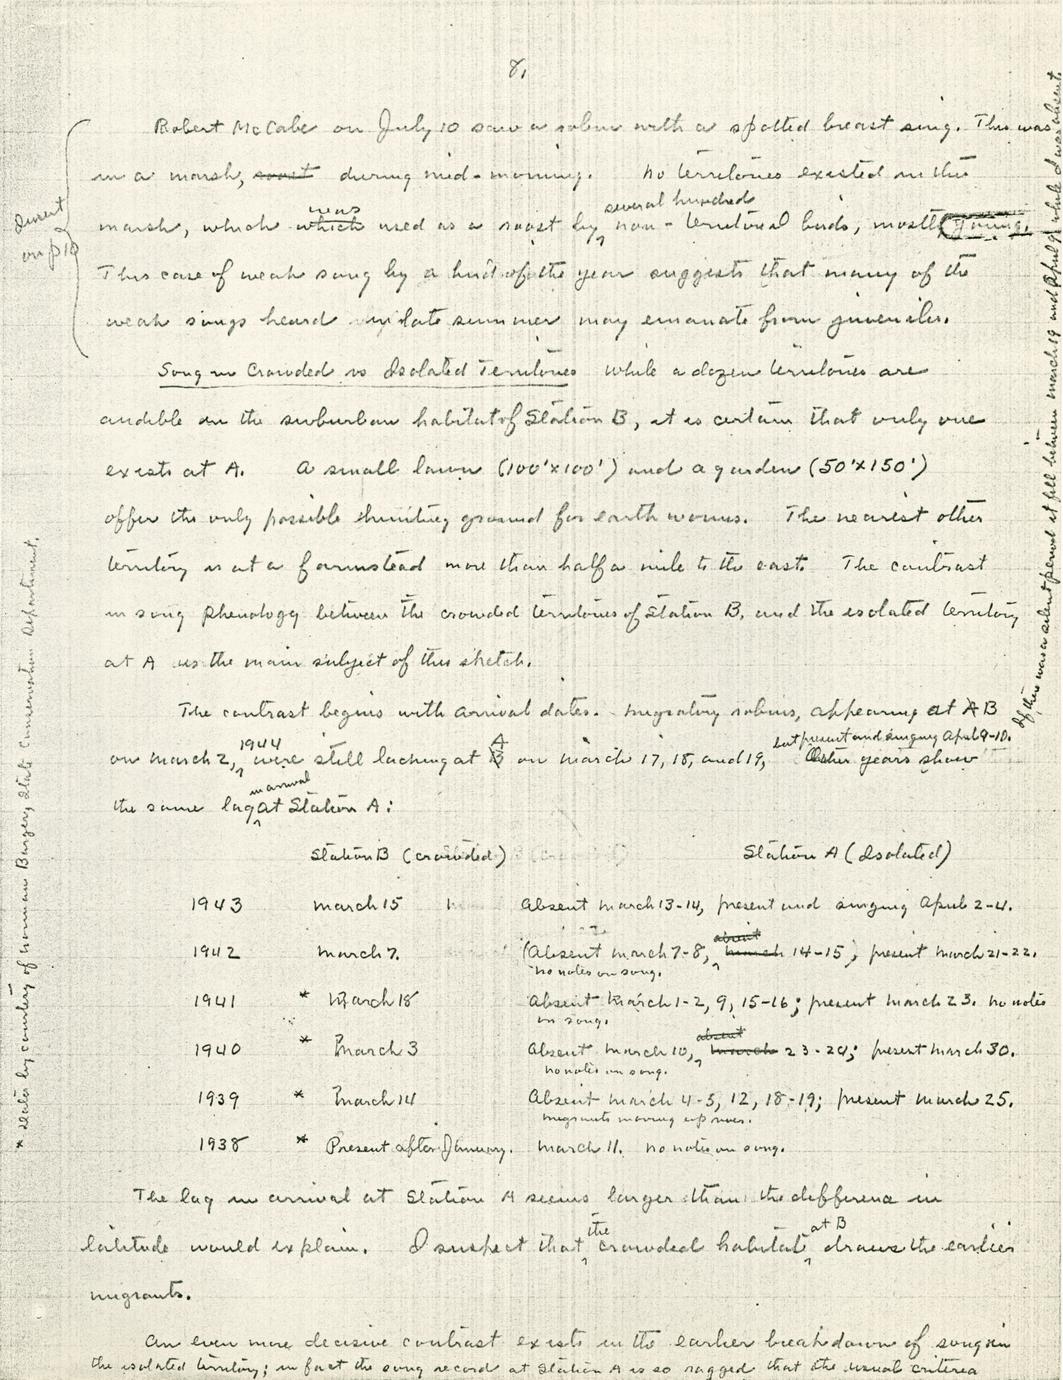 8.
Robert McCabe on July 10 saw a robin with a spotted breast sing. This was
in a marsh, roost during mid-morning. No territories exsisted in this
was several hundred
marsh, which which used as a roost by non-territorial birds, mostly young.
Insert
on p 10
This case of weak song by a bird of the year suggests that many of the
weak songs heard in late summer may emanate from juveniles.
Song in Crowded vs Isolated Territories While a dozen territories are
audible in the suburban habitat of Station B, it is certain that only one
exists at A. A small lawn (100'x100') and a garden (50'x150')
offer the only possible hunting ground for earthworms. The nearest other
territory is at a farmstead more than half a mile to the east. The contrast
in song phenology between the crowded territories of Station B, and the isolated territory
at A is the main subject of this sketch.
The contrast begins with arrival dates. Migratory robins, appearing at A B
1944 A but present and singing April 9-10.
on March 2, were still lacking at B on March 17, 18, and 19, Other years show
in arrival
the same lag at Station A:
Station B (crowded) Station A (Isolated)
1943 March 15 Absent March 13-14, present and singing April 2-4.
absent
1942 March 7. (Absent March 7-8, March 14-15); present March 21-22.
no notes on song.
1941 * March 18 Absent March 1-2, 9, 15-16; present March 23. No notes
on song.
absent
1940 * March 3 Absent March 10, March 23-24; present March 30.
no notes on song.
1939 * March 14 Absent March 4-5, 12, 18-19; present March 25.
migrants moving up river.
1938 * Present after January. March 11. No notes on song.
The lag in arrival at Station A seems larger than the difference in
the at B
latitude would explain. I suspect that crowded habitat draws the earlier
migrants.
An even more decisive contrast exists in the earlier breakdown of song in
the isolated territory; in fact the song record at Station A is so ragged that the usual criteria
* Dates by courtesy of Norman Barger, State Conservation Department.
If there was a silent period it fell between March 19 and April 9 while I was absent